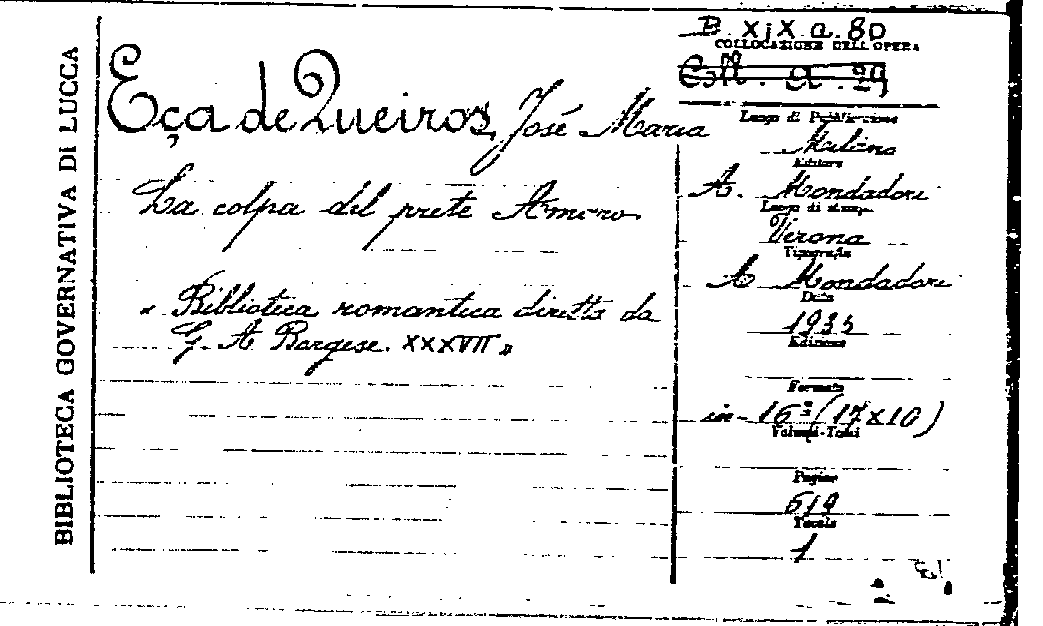 BIBLIOTECA GOVERNATIVA DI LUCCA
B. XIX a. 80
COLLOCAZIONE DELL'OPERA
Coll. a. 29
Eça de Queiros, José Maria
La colpa del prete Amaro
« Biblioteca romantica diretta da
G. A Borgese. XXXVII »
Luogo di Pubblicazione
Milano
Editore
A. Mondadori
Luogo di stampa
Verona
Tipografia
A Mondadori
Data
1935
Edizione
Formato
in-16º (17x10)
Volumi-Tomi
Pagine
519
Tavole
1